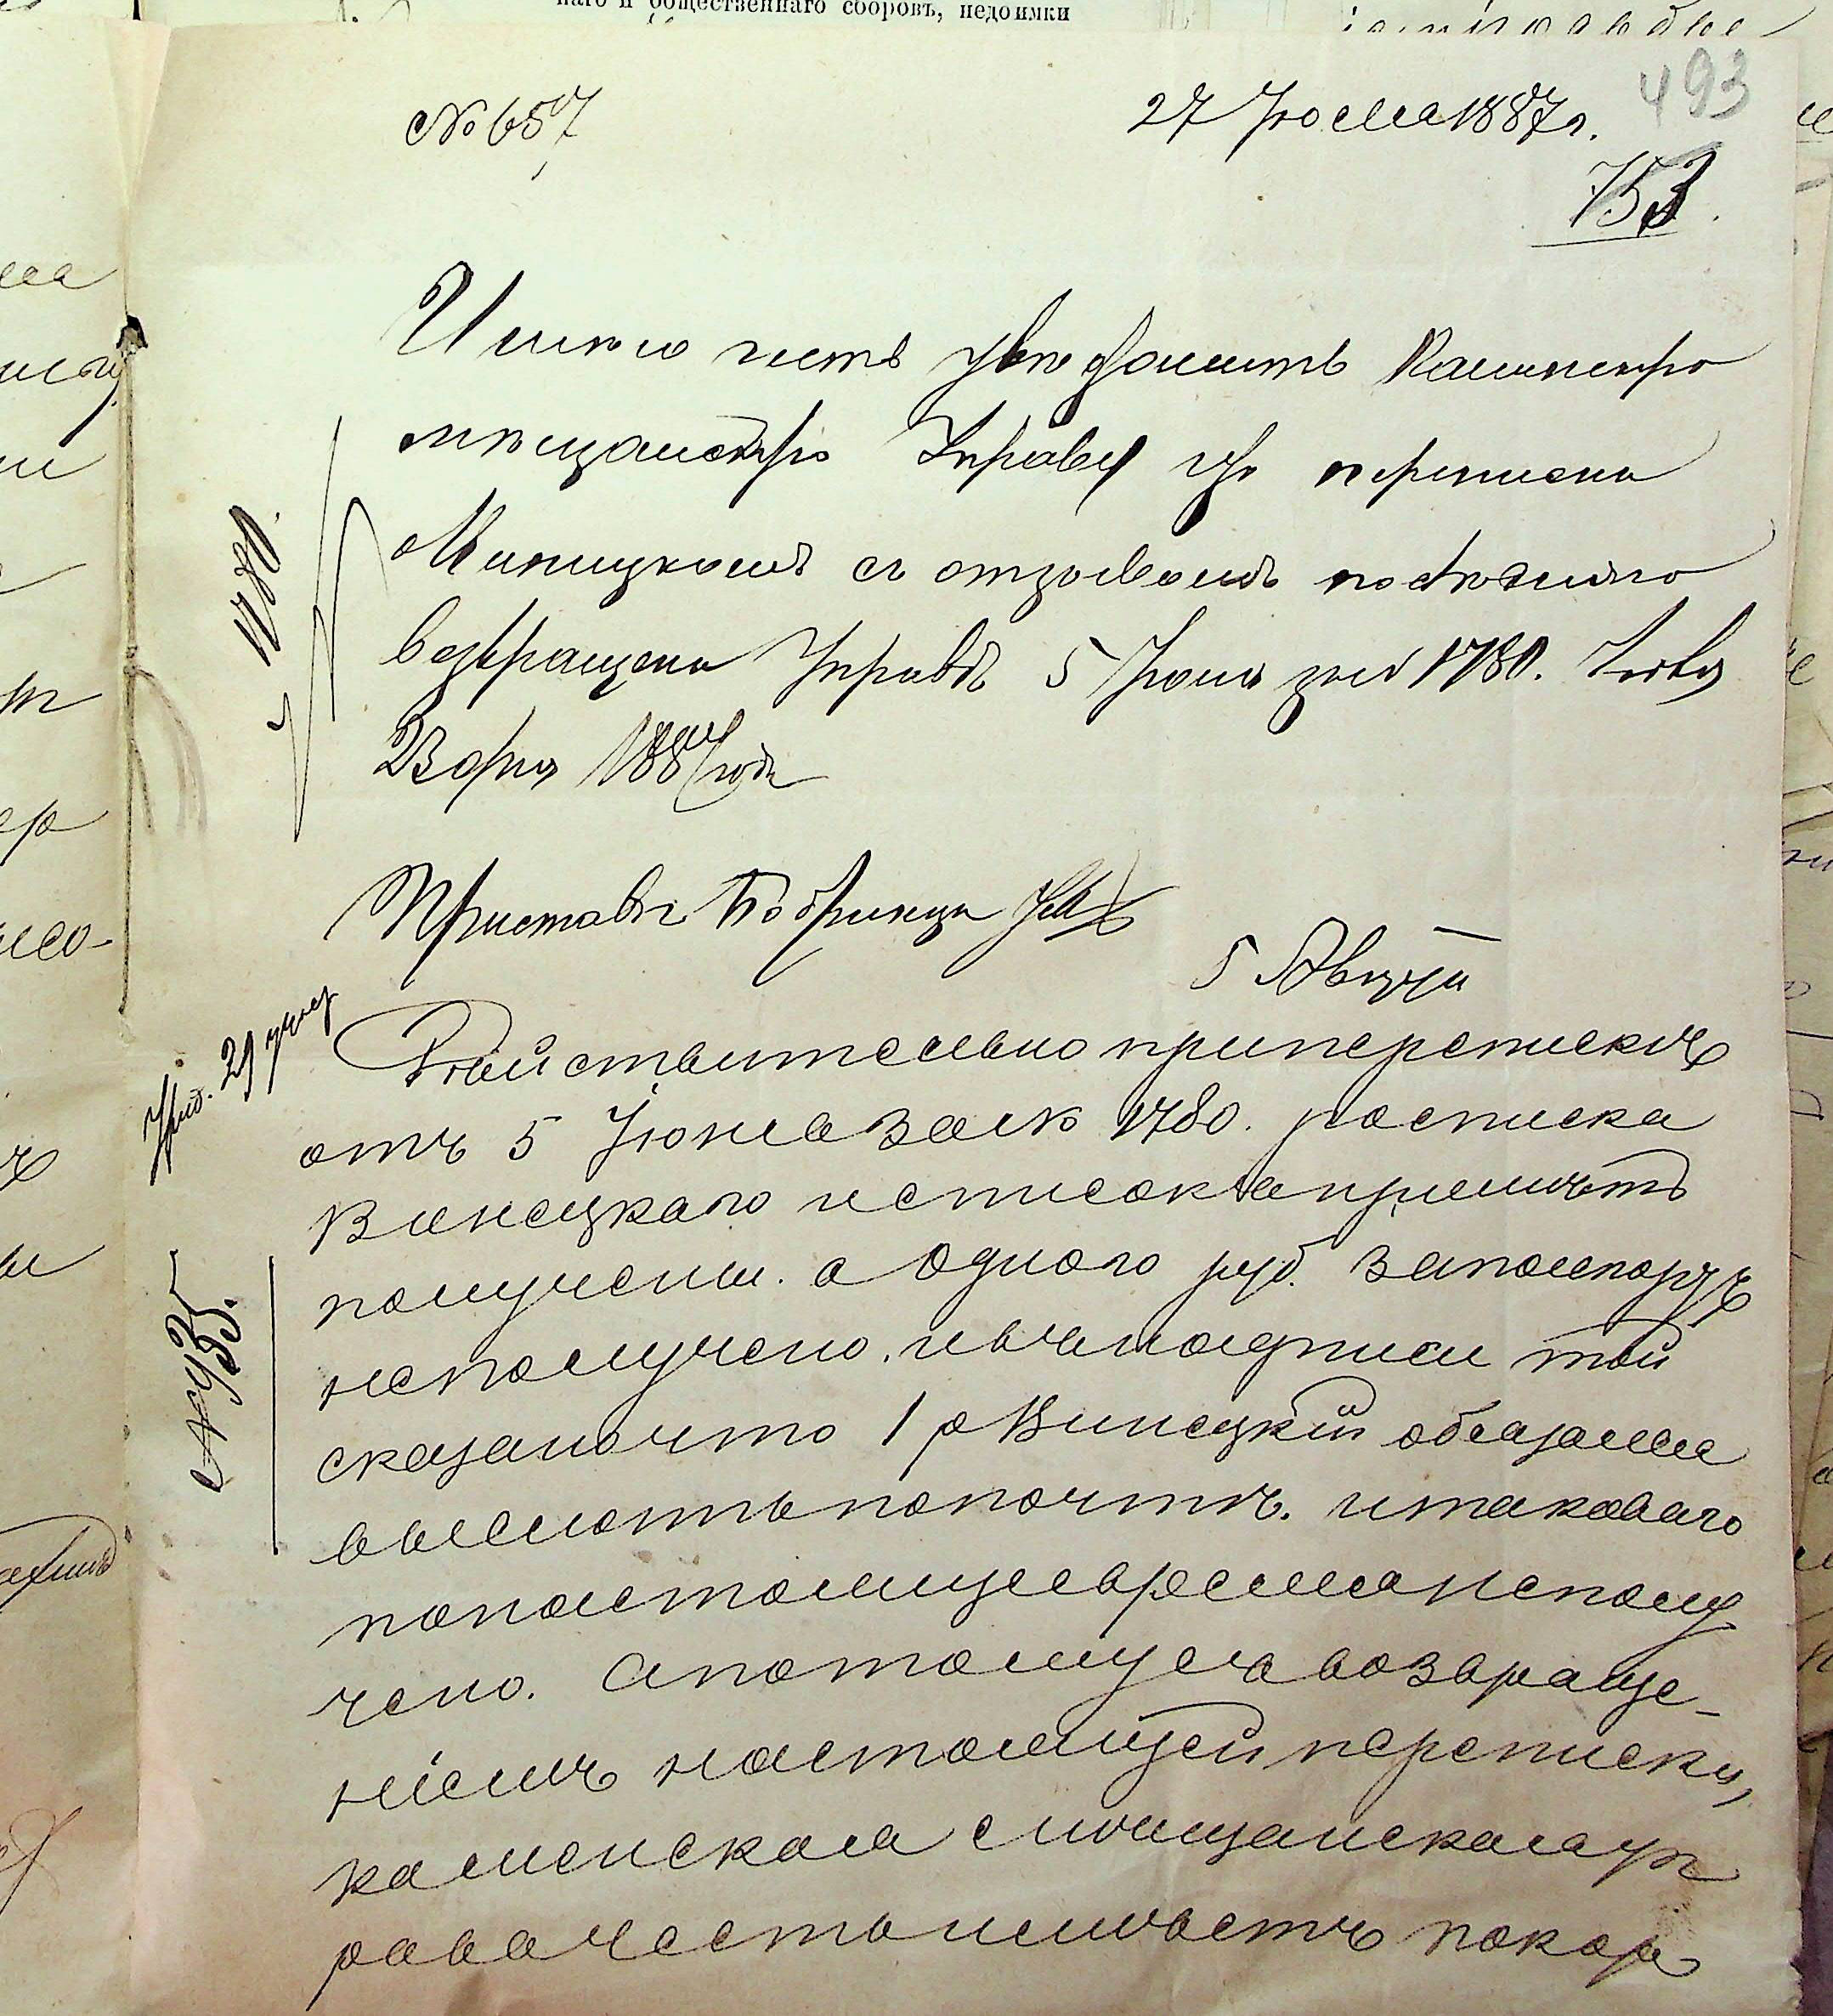 наго и общественнаго сборовъ, недоимки
№ 657
27 Іюля 1887 г.
493
753.
Имѣю честь увѣдомить Каменскую
мѣщанскую Управу что переписка
о Винецкомъ съ отзывомъ послѣдняго
возвращена Управѣ 5 Іюня за № 1780. Іюля
23 дня 1887 года
Приставъ Бобринца
5 Августа
1780.
Дѣйствительно при перепискѣ
отъ 5 Іюня за № 1780. росписка
Винецкаго и списокъ
получены. а одного руб. за паспортъ
не получено. и въ надписи той
сказано что 1 р Винецкій обязался
выслать по почтѣ. и таковаго
по настоящее время не полу
чено. а потому съ возвраще-
ніемъ настоящей переписки,
каменская мѣщанская уп
рава честь имѣетъ покор